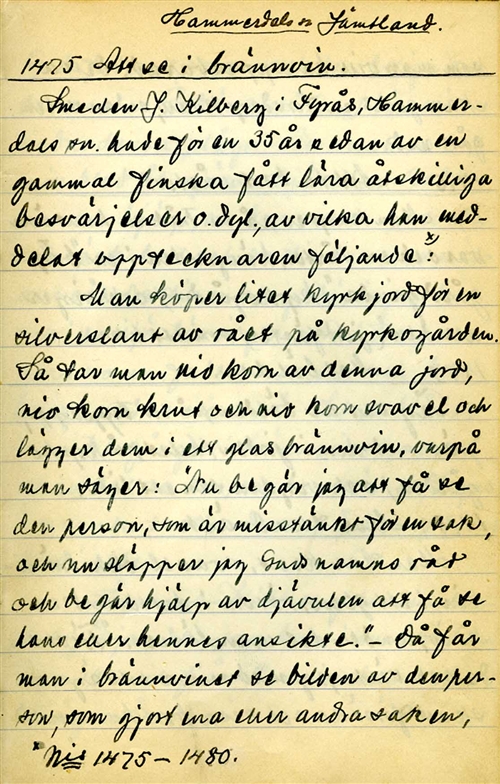 Hammerdals sn Jämtland.
1475 Att se i brännvin.
Smeden J. Kilberg i Fyrås, Hammer-
dals sn. hade för en 35 år sedan av en
gammal finska fått lära åtskilliga
besvärjelser o. dyl., av vilka han med-
delat upptecknaren följande x):
Man köper litet kyrkjord för en
silverslant av rået på kyrkogården.
Så tar man nio korn av denna jord,
nio korn krut och nio korn svavel och
lägger dem i ett glas brännvin, varpå
man säger: "Nu begär jag att få se
den person, som är misstänkt för en sak,
och nu släpper jag Guds namns råd
och begär hjälp av djävulen att få se
hans eller hennes ansikte." – Då får
man i brännvinet se bilden av den per-
son, som gjort ena eller andra saken,
x Nis 1475 – 1480.